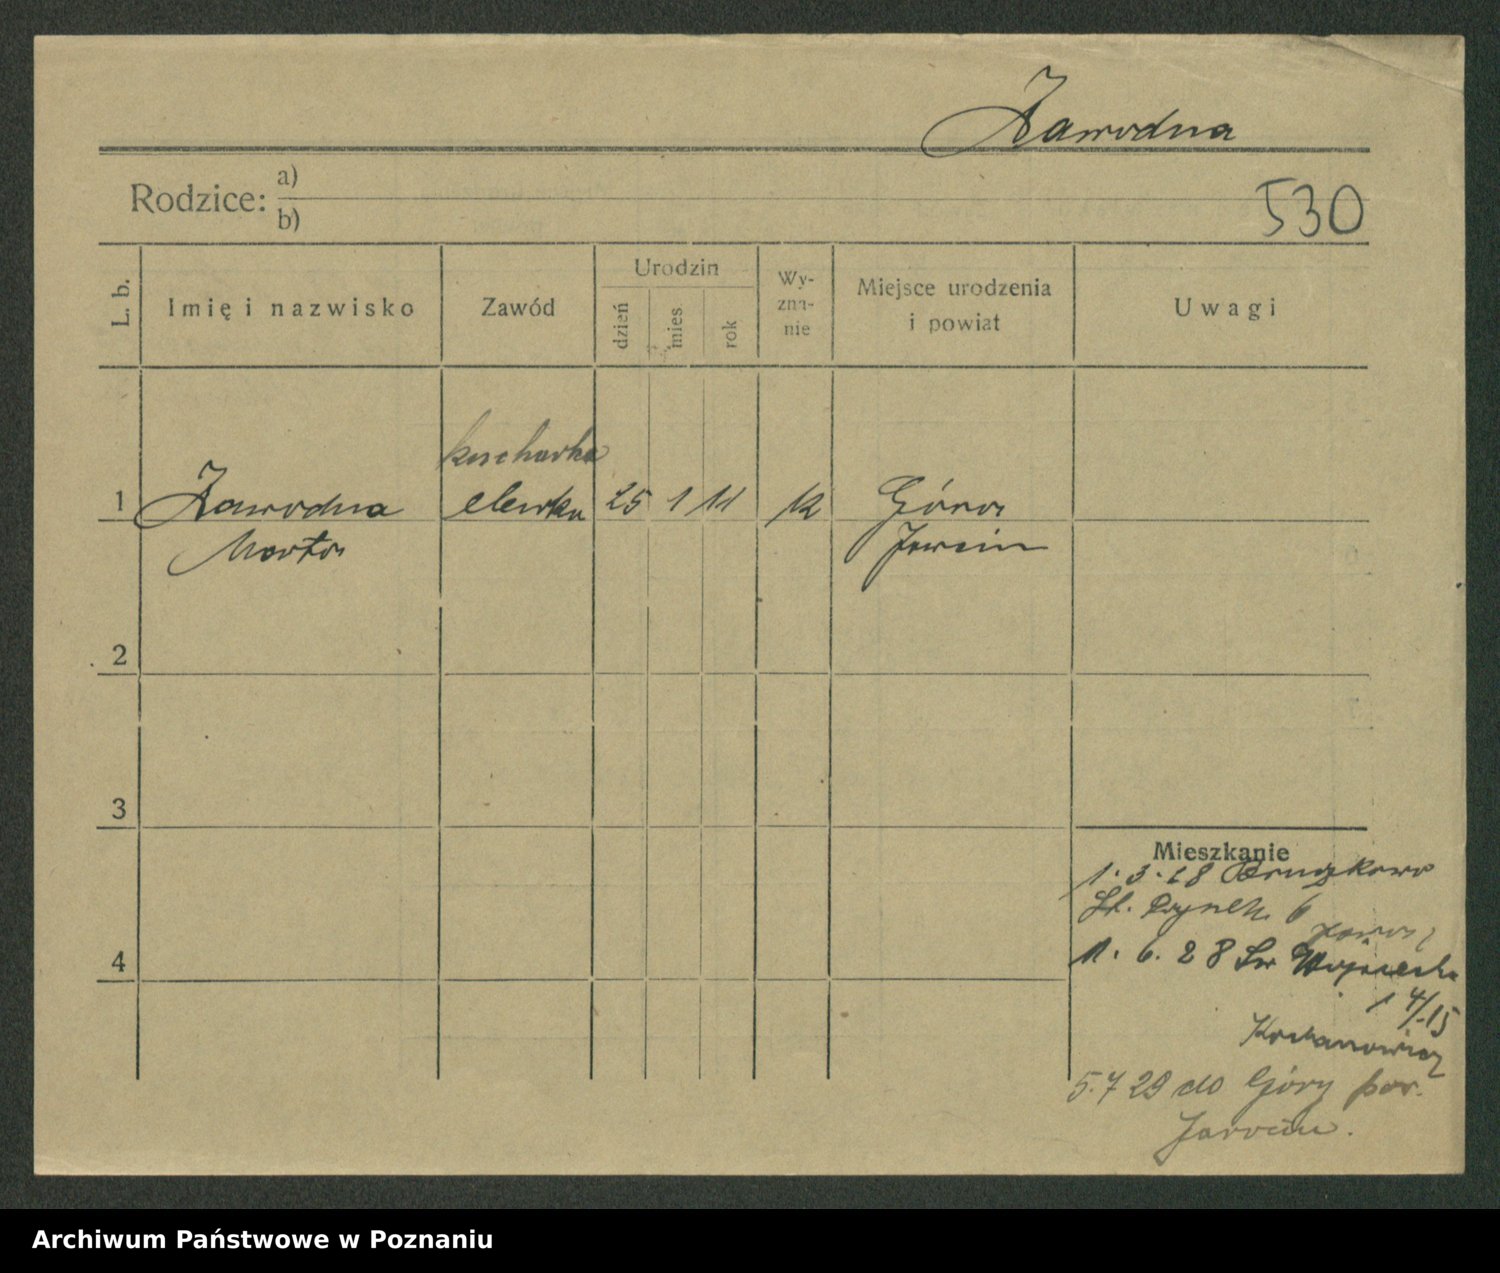 Zawodna
Rodzice: a)
b)
530
L. b.
Imię i nazwisko
Zawód
Urodzin
dzień
mies.
rok
Wy-
zna-
nie
Miejsce urodzenia
i powiat
Uwagi
kucharka
1 Zawodna elewka 25 1 11 K Góra
Marta Jarocin
2
3
Mieszkanie
1. 3. 28
St. Rynek 6
4
1. 6. 28 Św. Wojciecha
1 4/15
5. 7 29 do Góry pow.
Jarocin.
Archiwum Państwowe w Poznaniu